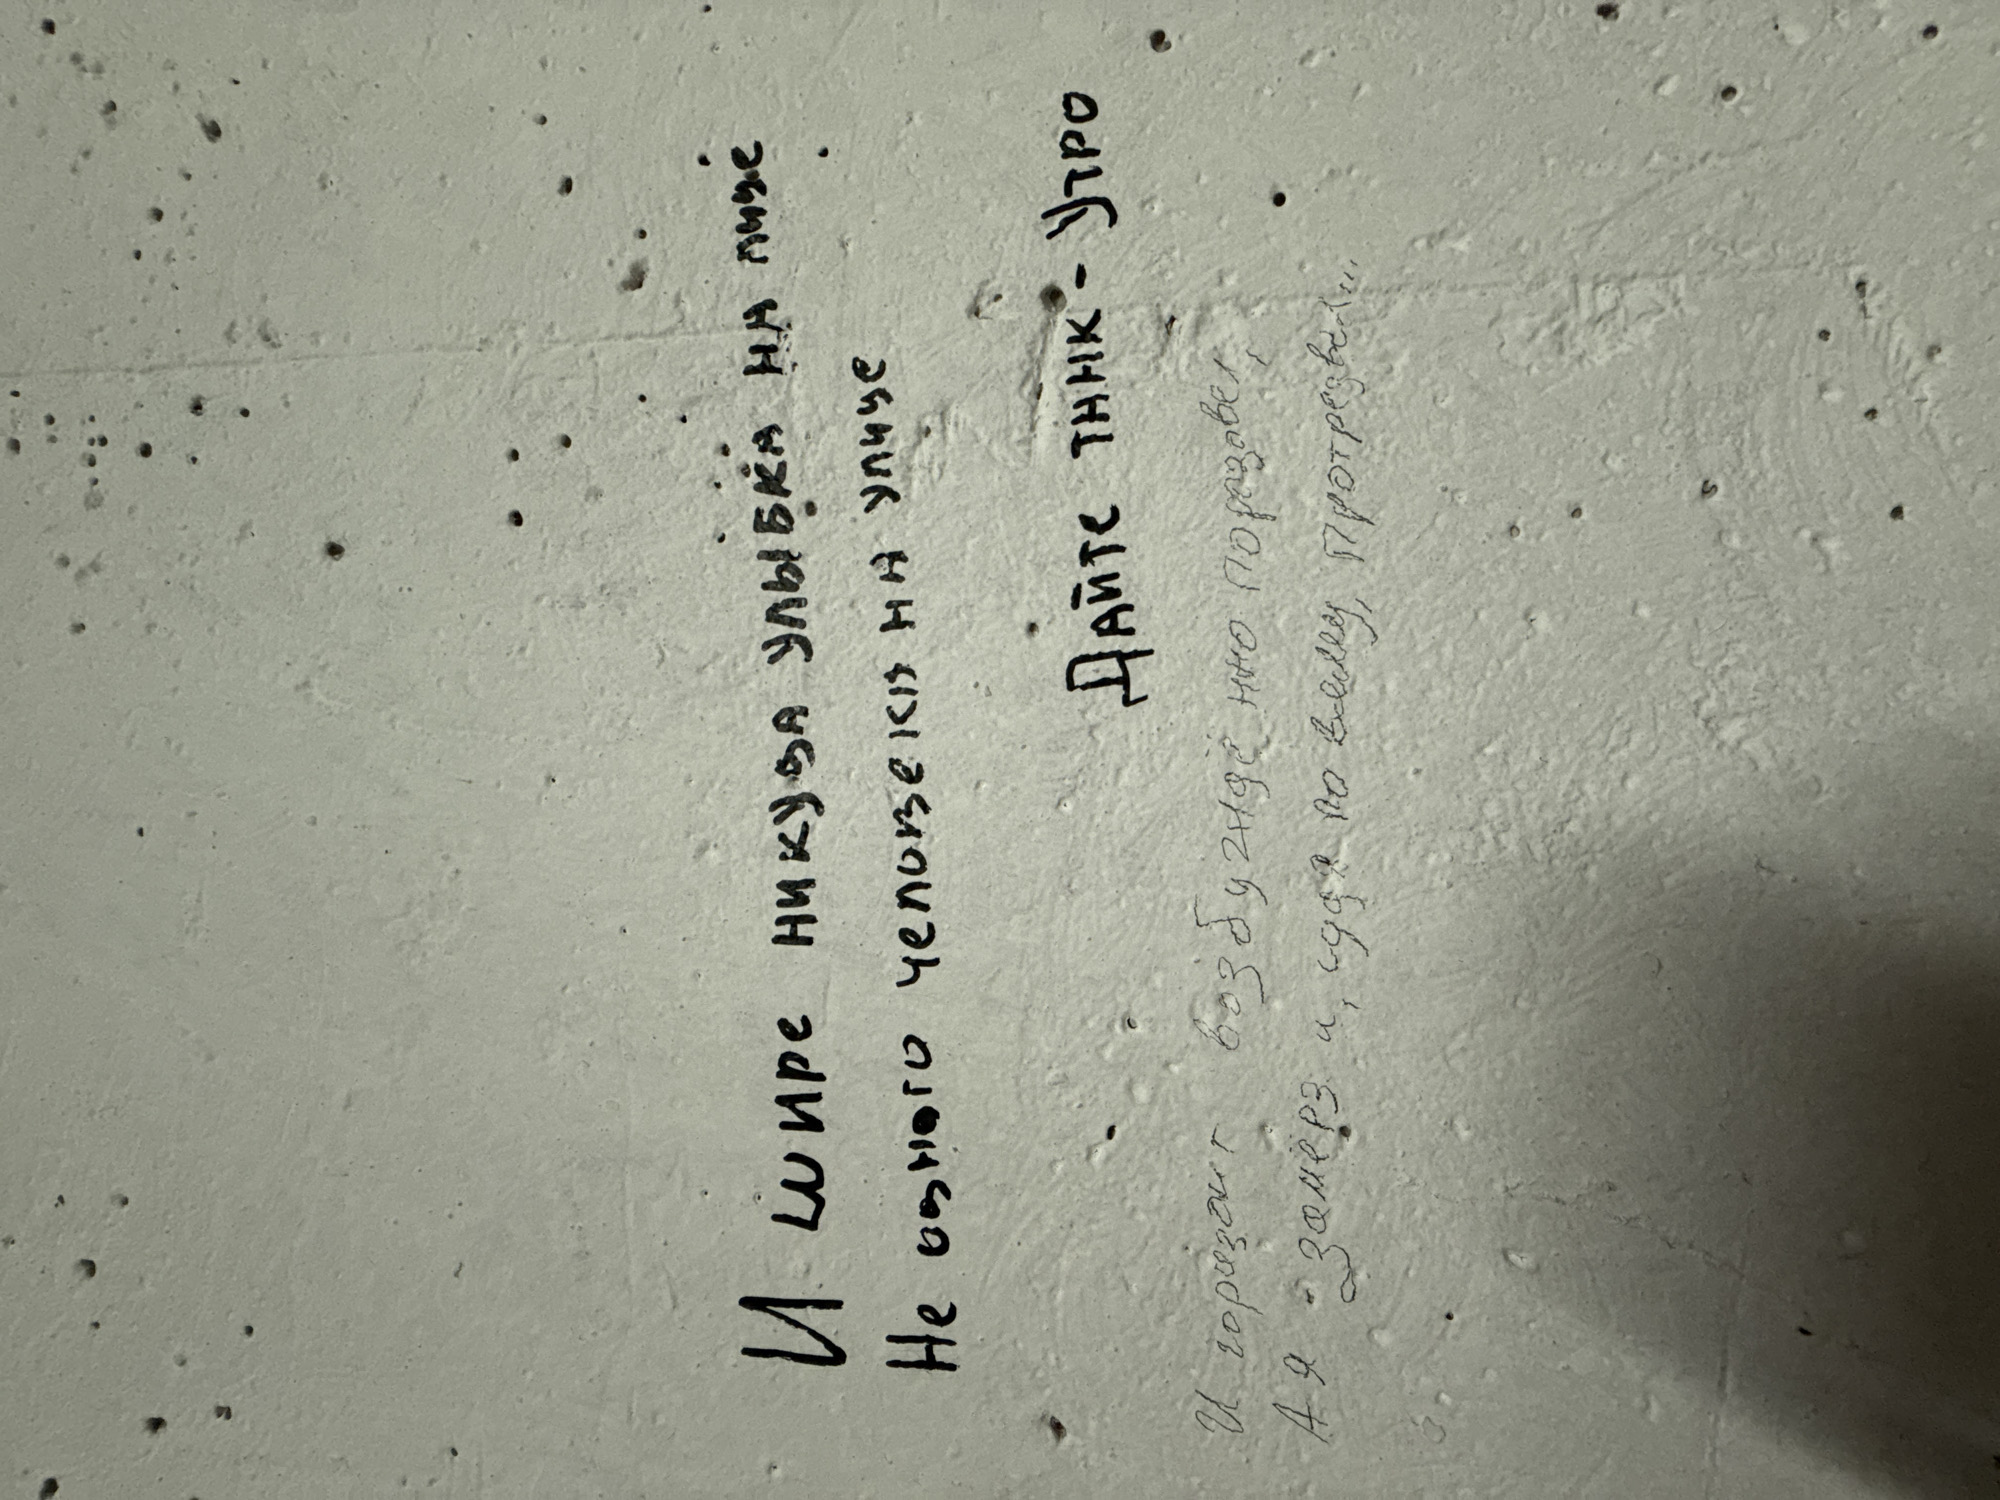 И шире никуда улыбка на лице
Не одного человека на улице
Дайте танк - Утро
И горизонт возбуждённо порозовел,
А я - замёрз и, судя по всему, протрезвел...